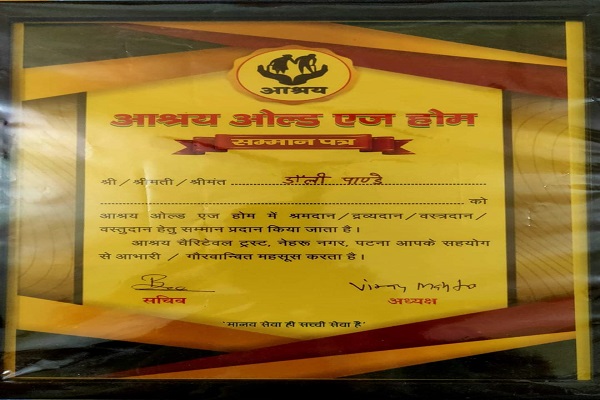 आश्रय
आश्रय ओल्ड एज होम
सम्मान पत्र
श्री / श्रीमती / श्रीमंत डॉली पाण्डे
को
आश्रय ओल्ड एज होम में श्रमदान / द्रव्यदान / वस्त्रदान /
वस्तुदान हेतु सम्मान प्रदान किया जाता है।
आश्रय चैरिटेवल ट्रस्ट, नेहरू नगर, पटना आपके सहयोग
से आभारी / गौरवान्वित महसूस करता है।
Vijay Mahto
सचिव अध्यक्ष
'मानव सेवा ही सच्ची सेवा है'